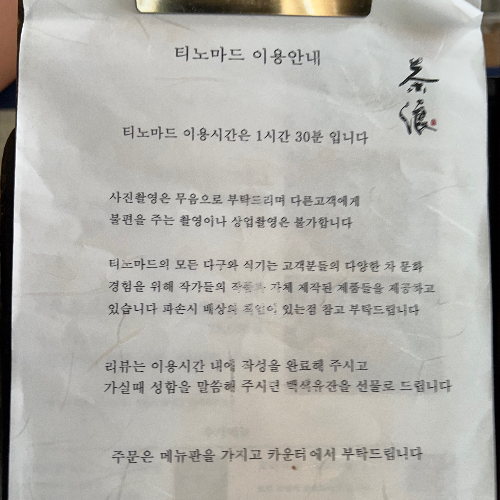 티노마드 이용안내
茶
浪
티노마드 이용시간은 1시간 30분 입니다
사진촬영은 무음으로 부탁드리며 다른고객에게
불편을 주는 촬영이나 상업촬영은 불가합니다
티노마드의 모든 다구와 식기는 고객분들의 다양한 차 문화
경험을 위해 작가들의 작품과 자체 제작된 제품들을 제공하고
있습니다 파손시 배상의 책임이 있는점 참고 부탁드립니다
리뷰는 이용시간 내에 작성을 완료해 주시고
가실때 성함을 말씀해 주시면 백색유잔을 선물로 드립니다
주문은 메뉴판을 가지고 카운터에서 부탁드립니다